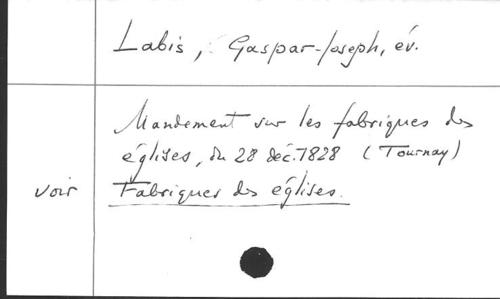 Labis, Gaspar-Joseph, év.
Mandement sur les fabriques des
églises, du 28 déc. 1828 (Tournay)
voir Fabriques des églises.